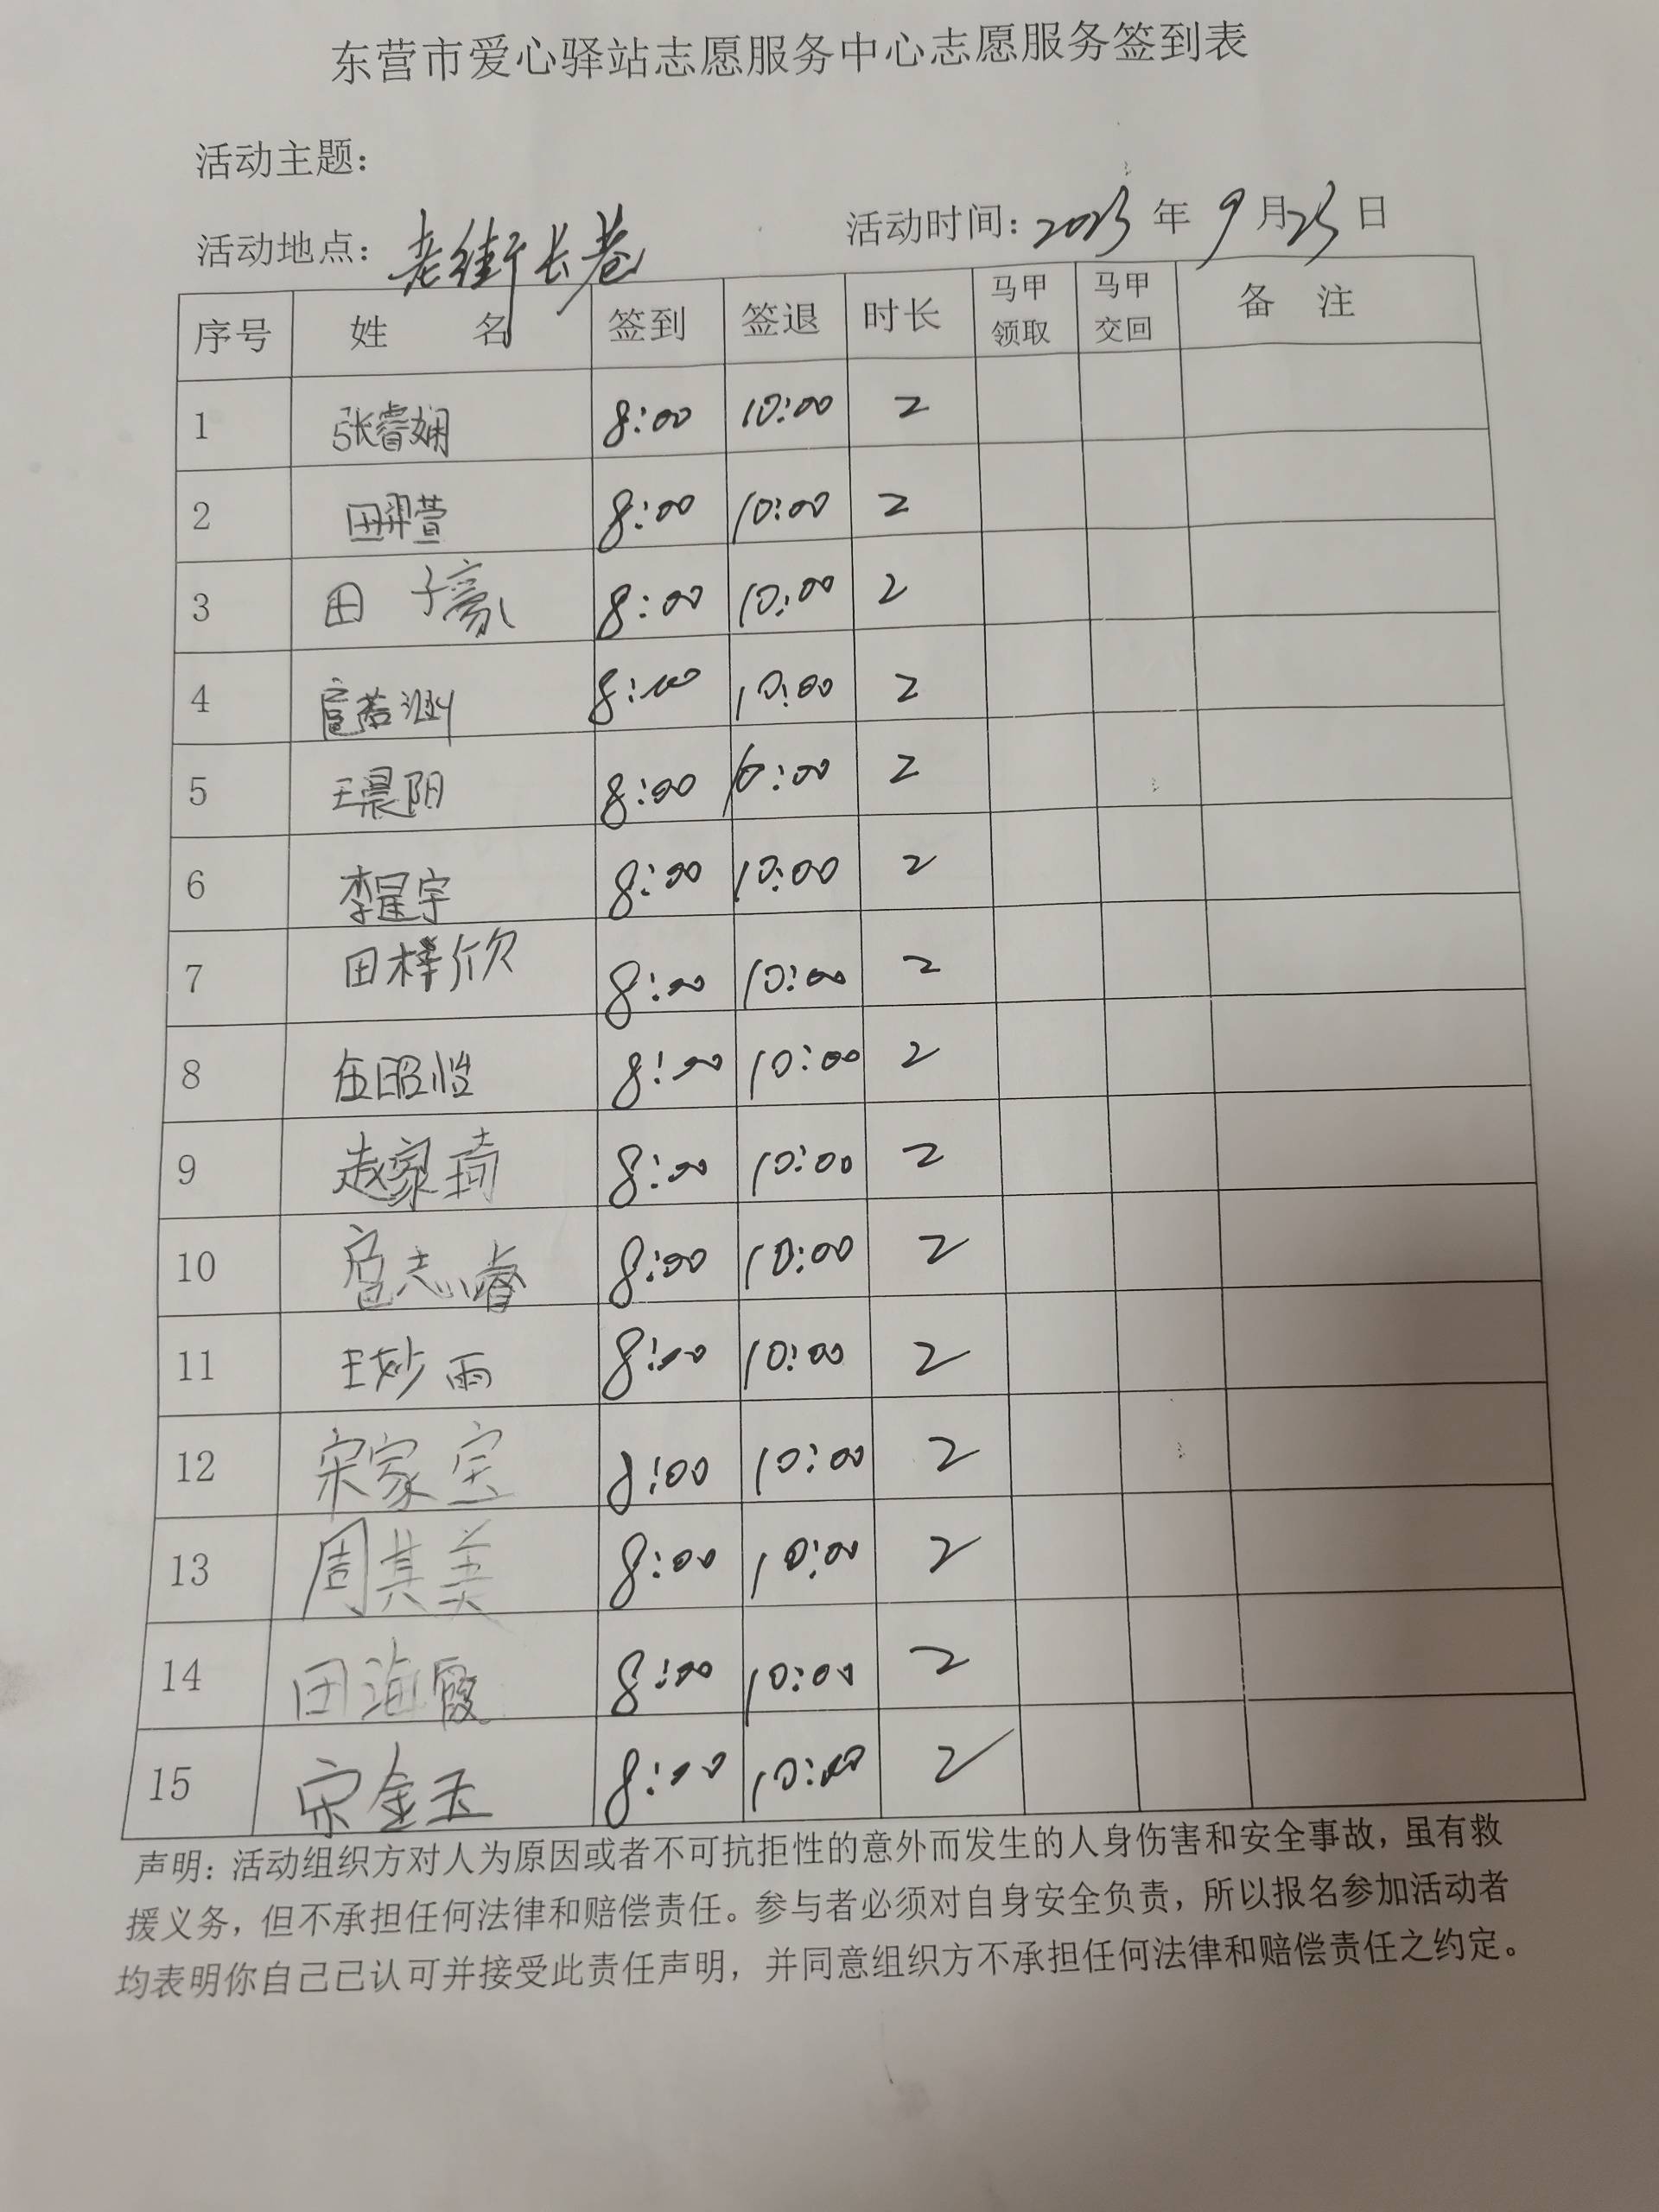 东营市爱心驿站志愿服务中心志愿服务签到表
活动主题：
活动地点：老街长巷 活动时间：2023年9月23日
序号 姓 名 签到 签退 时长 马甲领取 马甲交回 备 注
1 张睿娴 8:00 10:00 2
2 田羿萱 8:00 10:00 2
3 田子豪 8:00 10:00 2
4 扈若涵 8:00 10:00 2
5 王晨阳 8:00 10:00 2
6 李星宇 8:00 10:00 2
7 田梓欣 8:00 10:00 2
8 8:00 10:00 2
9 赵家琦 8:00 10:00 2
10 扈志睿 8:00 10:00 2
11 王妙雨 8:00 10:00 2
12 宋家宝 8:00 10:00 2
13 周其美 8:00 10:00 2
14 田海霞 8:00 10:00 2
15 宋金玉 8:00 10:00 2
声明：活动组织方对人为原因或者不可抗拒性的意外而发生的人身伤害和安全事故，虽有救
援义务，但不承担任何法律和赔偿责任。参与者必须对自身安全负责，所以报名参加活动者
均表明你自己已认可并接受此责任声明，并同意组织方不承担任何法律和赔偿责任之约定。